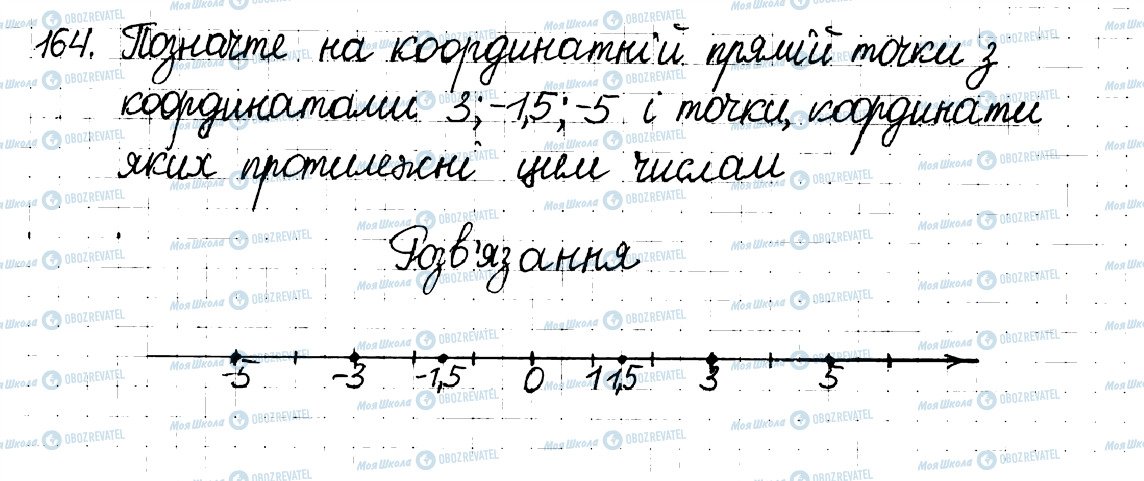 164. Позначте на координатній прямій точки з
координатами 3; -1,5; -5 і точки, координати
яких протилежні цим числам
Розв'язання
-5 -3 -1,5 0 1 1,5 3 5
Моя Школа OBOZREVATEL